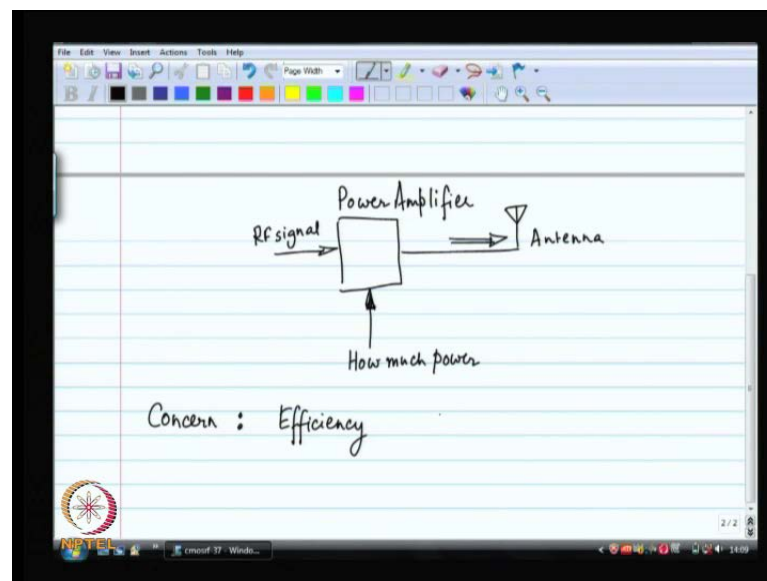 File Edit View Insert Actions Tools Help
Page Width
B I
Power Amplifier
RF signal
Antenna
How much power
Concern : Efficiency
2/2
NPTEL
cmosrf-37 - Windo...
14:09